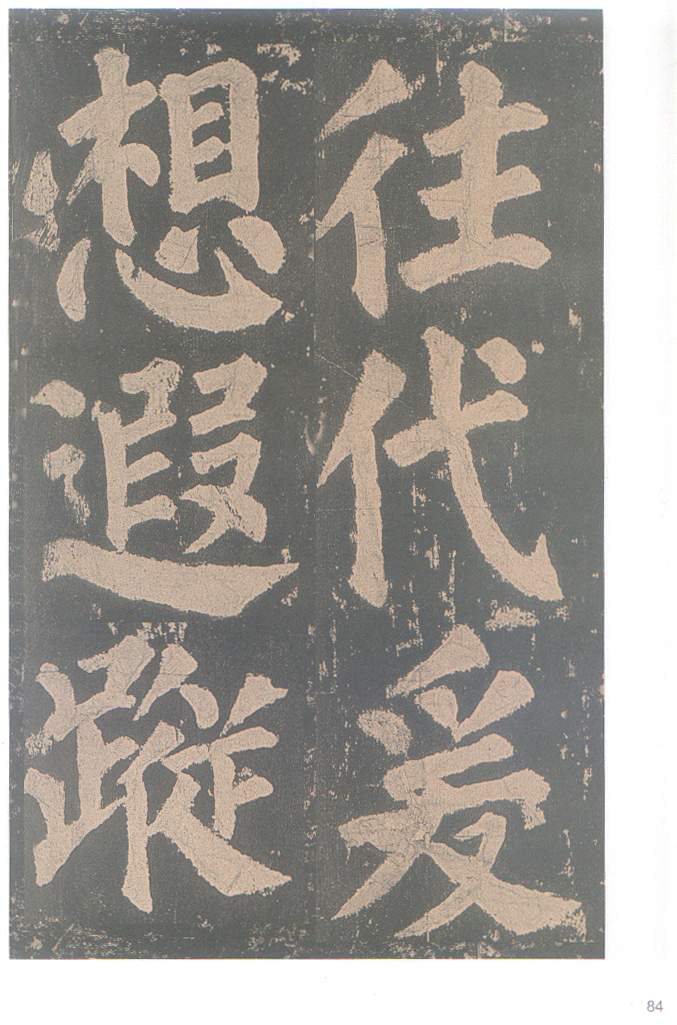 往代爰
想遐蹤
84